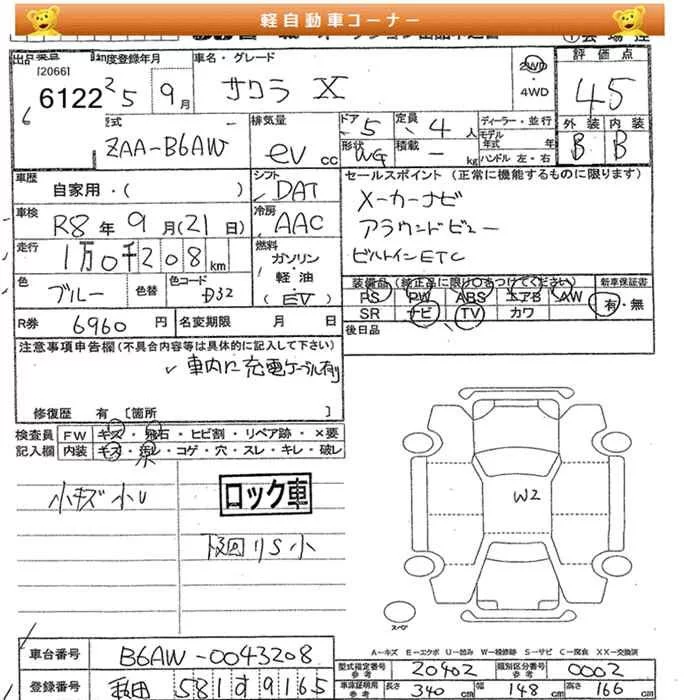 軽自動車コーナー
出品番号 初度登録年月 車名・グレード 2WD ・ 4WD 評価点
[2066]
6122 25 9月 サクラ X 45
型式 排気量 ドア 定員 ディーラー・並行 外装 内装
ZAA-B6AW ev cc 5 4人 モデル年式 年式 B B
形状 WG 積載 - kg ハンドル 左・右
車歴 自家用・( ) シフト DAT セールスポイント (正常に機能するものに限ります)
車検 R8年9月(21日) 冷房 AAC メーカーナビ
アラウンドビュー
走行 1万0千208km 燃料 ガソリン・軽・油 (EV) ビルトインETC
色 ブルー 色替 色コード D32
装備品 (純正品に限り○をつけてください) 新車保証書
PS PW ABS エアB AW 有・無
SR ナビ TV カワ
R券 6960円 名変期限 月 日 後日品
注意事項申告欄(不具合内容等は具体的に記入して下さい)
車内に充電ケーブル有り
修復歴 有 [箇所 ]
検査員 FW キズ・飛石・ヒビ割・リペア跡・×要
記入欄 内装 キズ・汚レ・コゲ・穴・スレ・キレ・破レ
小キズ小U ロック車
下回りS小
W2
スペア
A-キズ E-エクボ U-凹み W-補修跡 S-サビ C-腐食 XX-交換済
車台番号 B6AW-0043208 型式指定番号 参考 20902 類別区分番号 参考 0002
登録番号 581す9165 車庫証明用 参考 長さ 340cm 幅 148cm 高さ 166cm